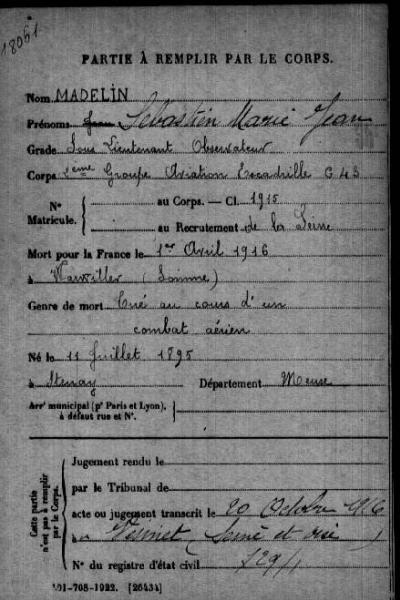 18051
PARTIE À REMPLIR PAR LE CORPS.
Nom MADELIN
Prénoms Jean Sébastien Marie Jean
Grade Sous Lieutenant Observateur
Corps Groupe Aviation Escadrille C 43
N° Matricule. { au Corps. — Cl. 1915
au Recrutement de la Seine
Mort pour la France le 1er Avril 1916
à Warviller (Somme)
Genre de mort Tué au cours d'un
combat aérien
Né le 11 Juillet 1895
à Stenay Département Meuse
Arrt municipal (pr Paris et Lyon), à défaut rue et N°.
Cette partie n'est pas à remplir par le Corps.
Jugement rendu le
par le Tribunal de
acte ou jugement transcrit le 20 Octobre 1916
à Vésinet (Seine et Oise)
N° du registre d'état civil 129/1
101-708-1922. [26434]